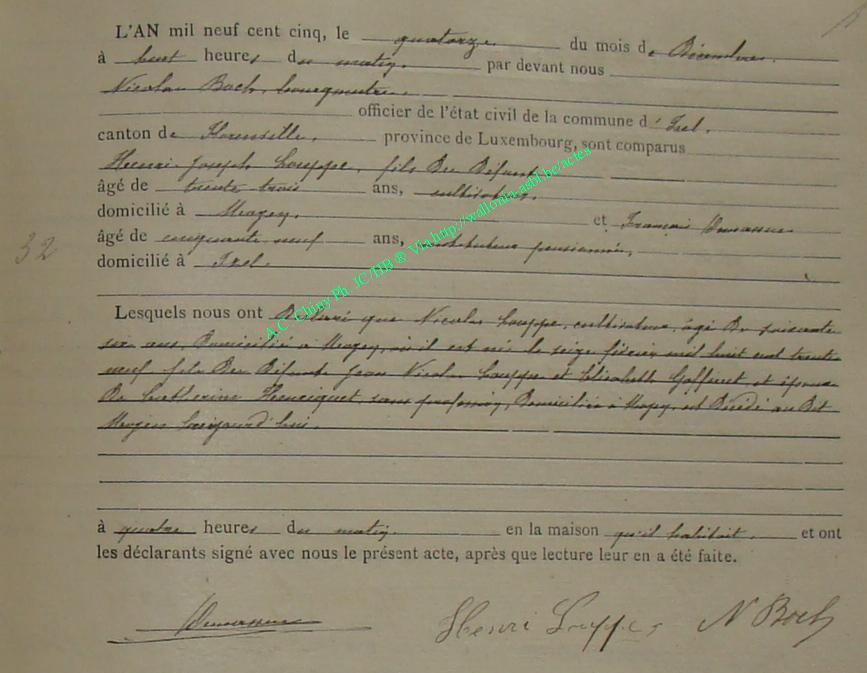 L'AN mil neuf cent cinq, le quatorze du mois de Décembre.
à huit heures du matin. par devant nous
Nicolas Boch, bourgmestre.
officier de l'état civil de la commune d'Izel.
canton de Florenville. province de Luxembourg, sont comparus
Henri Joseph Louppe, fils Du Défunt
âgé de trente trois ans, cultivateur.
domicilié à Moyen. et François
âgé de cinquante neuf ans, pensionné,
32
domicilié à Izel.
Lesquels nous ont Déclaré que Nicolas Louppe, cultivateur, âgé De soixante
six ans, Domicilié à Moyen, où il est né le seize février mil huit cent trente
neuf fils Des Défunts Jean Nicolas Louppe et Elisabeth Goffinet, et époux
De Catherine Henriquet, sans profession, Domiciliée à Moyen, est Décédé au Dit
Moyen aujourd'hui.
à quatre heures du matin. en la maison qu'il habitait. et ont
les déclarants signé avec nous le présent acte, après que lecture leur en a été faite.
Henri Louppe N Boch
A.C. Chiny Ph JC/HB ® Via http://wallonia-asbl.be/actes